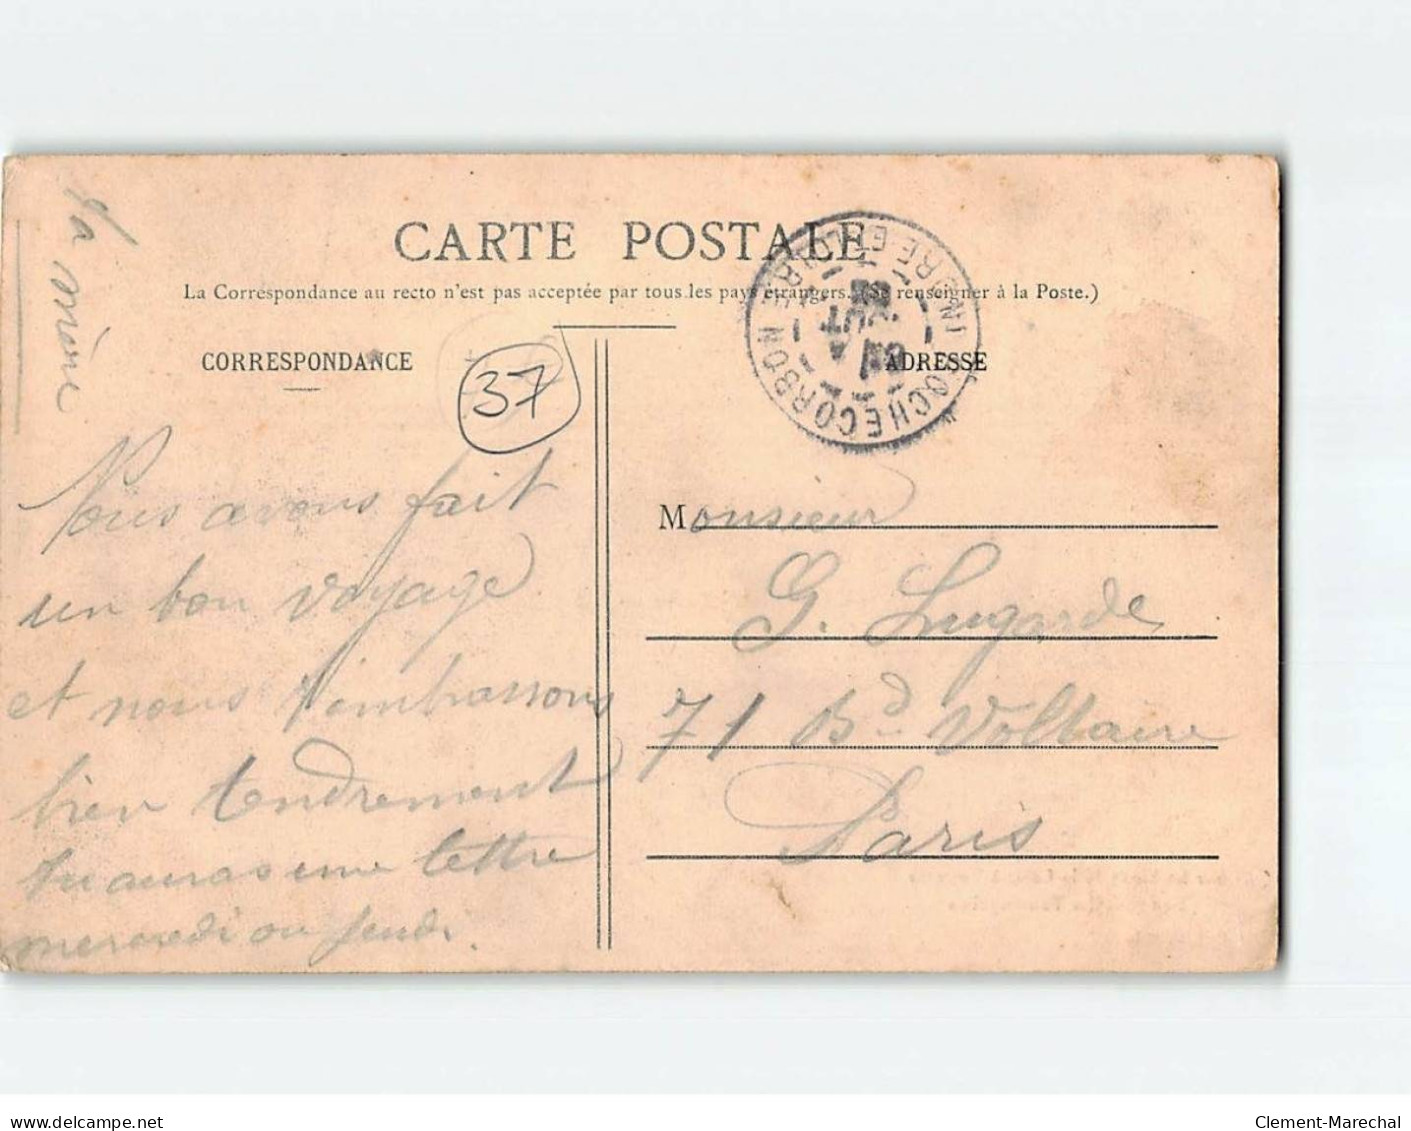 CARTE POSTALE
La Correspondance au recto n'est pas acceptée par tous les pays étrangers. (Se renseigner à la Poste.)
CORRESPONDANCE
37
ADRESSE
ROCHECORBON
INDRE ET LOIRE
Nous avons fait
un bon voyage
et nous t'embrassons
bien tendrement
tu auras une lettre
mercredi ou jeudi.
Ta mère
Monsieur
G. Lugarde
71 Bd Voltaire
Paris
www.delcampe.net
Clement-Marechal